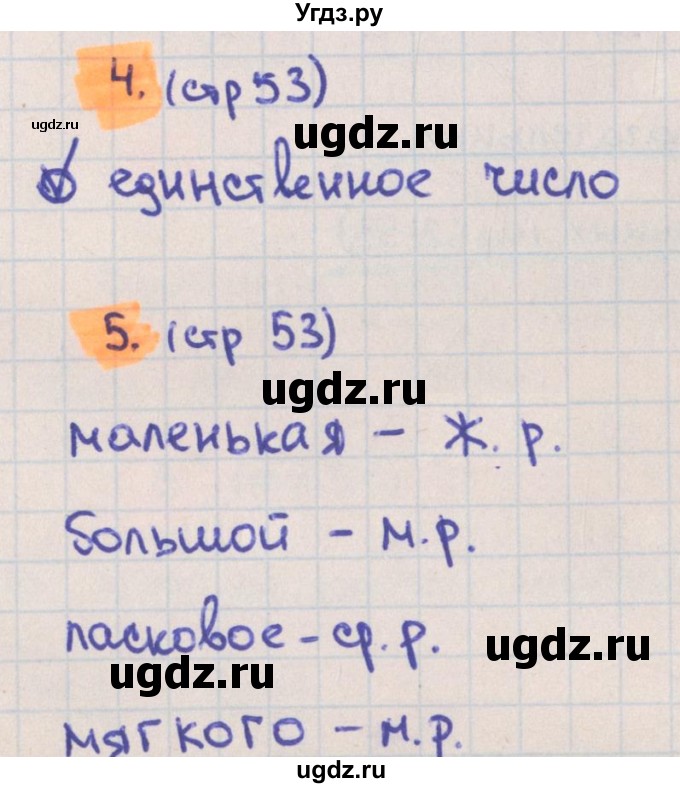 Угдз.ру
4. (стр 53)
ugdz.ru
ugdz.ru
единственное число
5. (стр 53)
ugdz.ru
маленькая - ж. р.
большой - м. р.
ласковое - ср. р.
ugdz.ru
ugdz.ru
мягкого - м. р.
ugdz.ru